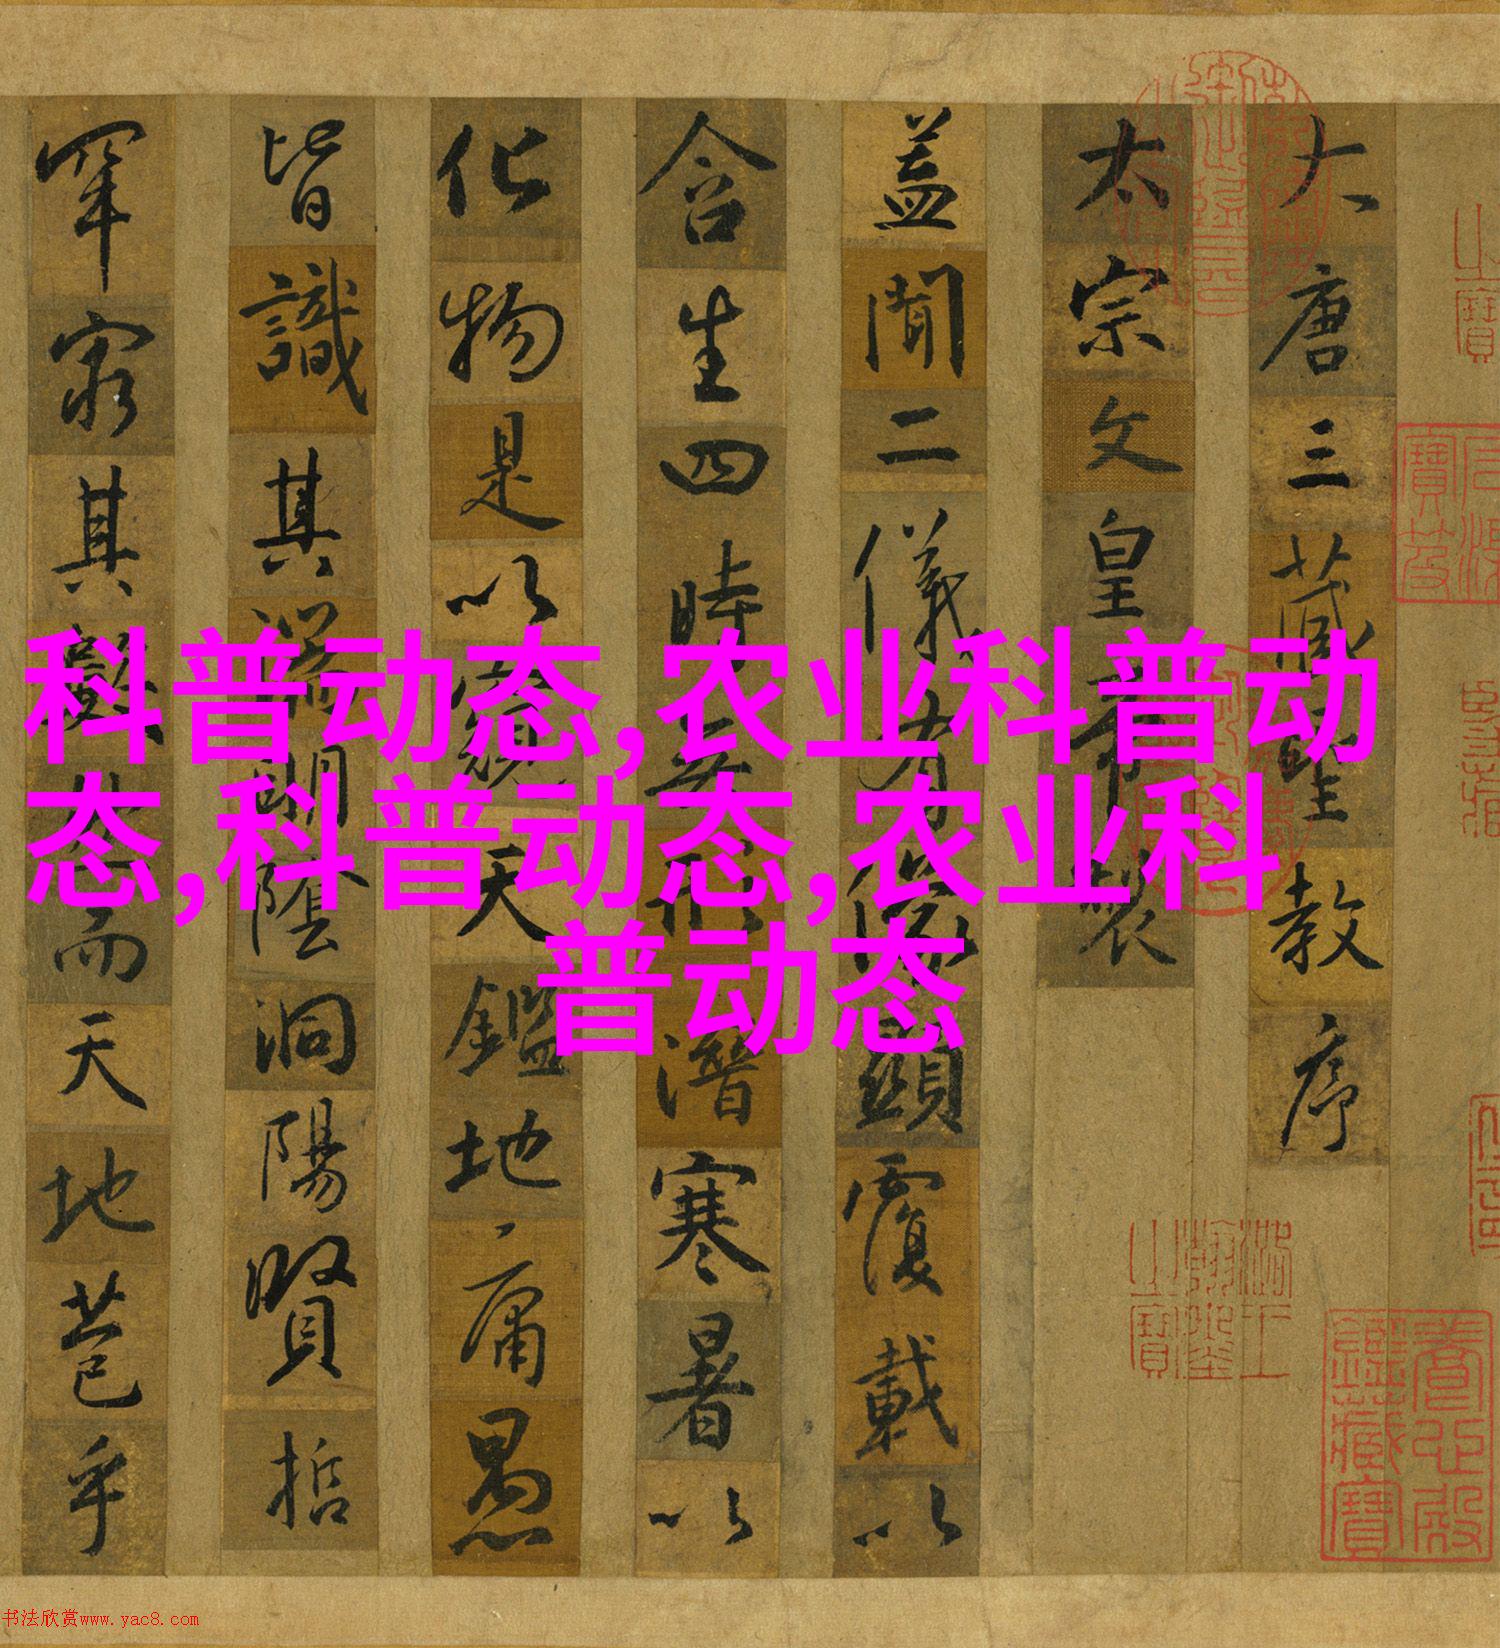 大唐三藏聖教序
太宗文皇帝製
蓋聞二儀有像顯覆載以
含生四時無形潛寒暑以
化物是以窺天鑑地庸愚
皆識其端明陰洞陽賢哲
罕窮其數然而天地苞乎
科普动态,农业科普动
态,科普动态,农业科
普动态
養心殿鑑藏寶
书法欣赏www.yac8.com